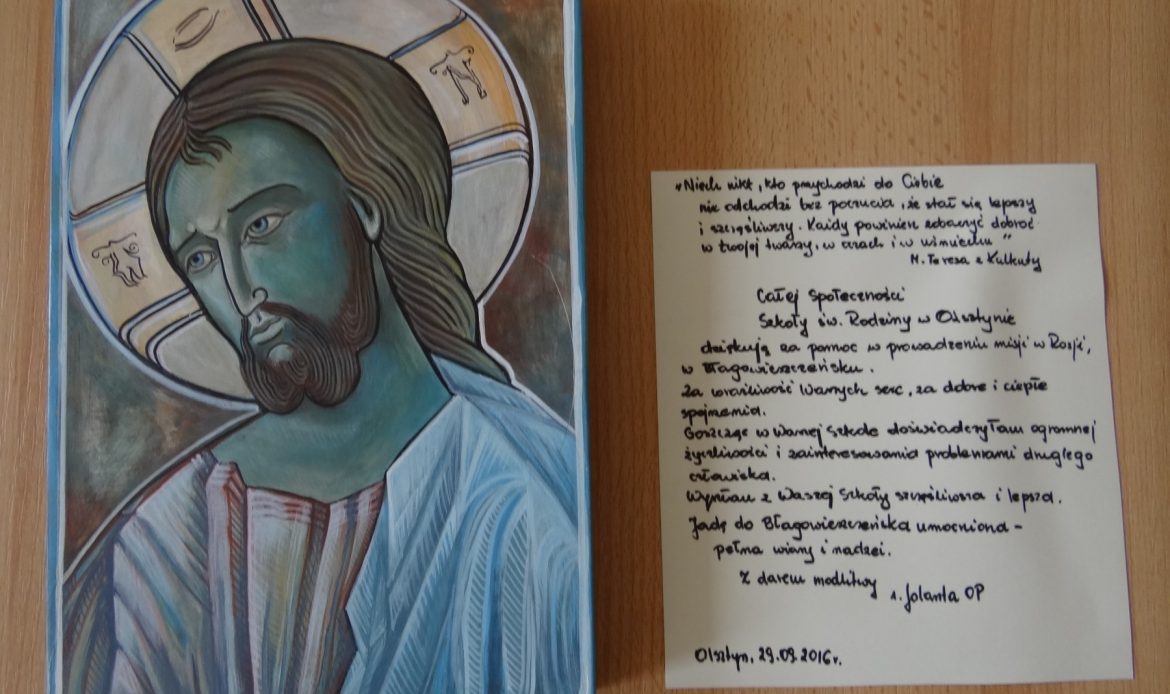 "Niech nikt, kto przychodzi do Ciebie
nie odchodzi bez poczucia, że stał się lepszy
i szczęśliwszy. Każdy powinien zobaczyć dobroć
w twojej twarzy, w oczach i w uśmiechu"
M. Teresa z Kalkuty
Całej Społeczności
Szkoły św. Rodziny w Olsztynie
dziękuję za pomoc w prowadzeniu misji w Rosji,
w Błagowieszczeńsku.
Za wrażliwość Waszych serc, za dobre i ciepłe
spojrzenia.
Goszcząc w Waszej Szkole doświadczyłam ogromnej
życzliwości i zainteresowania problemami drugiego
człowieka.
Wyszłam z Waszej Szkoły szczęśliwsza i lepsza.
Jadę do Błagowieszczeńska umocniona -
pełna wiary i nadziei.
Z darem modlitwy
s. Jolanta OP
Olsztyn, 29.09.2016r.